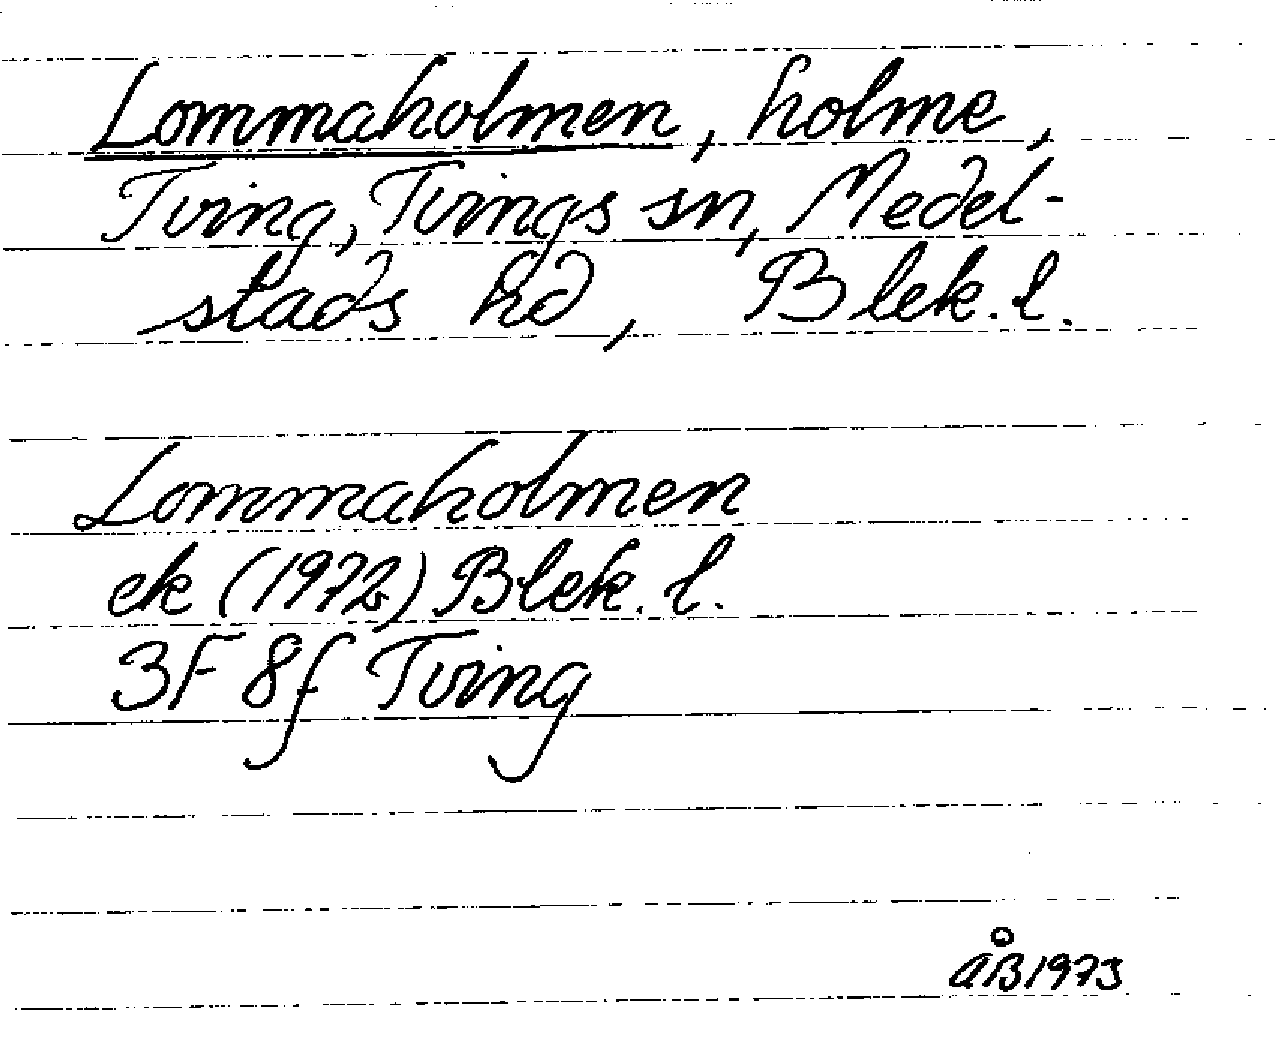 Lommaholmen, holme,
Tving, Tvings sn, Medel-
stads hd, Blek. l.
Lommaholmen
ek (1972) Blek. l.
3F 8f Tving
ÅB 1973